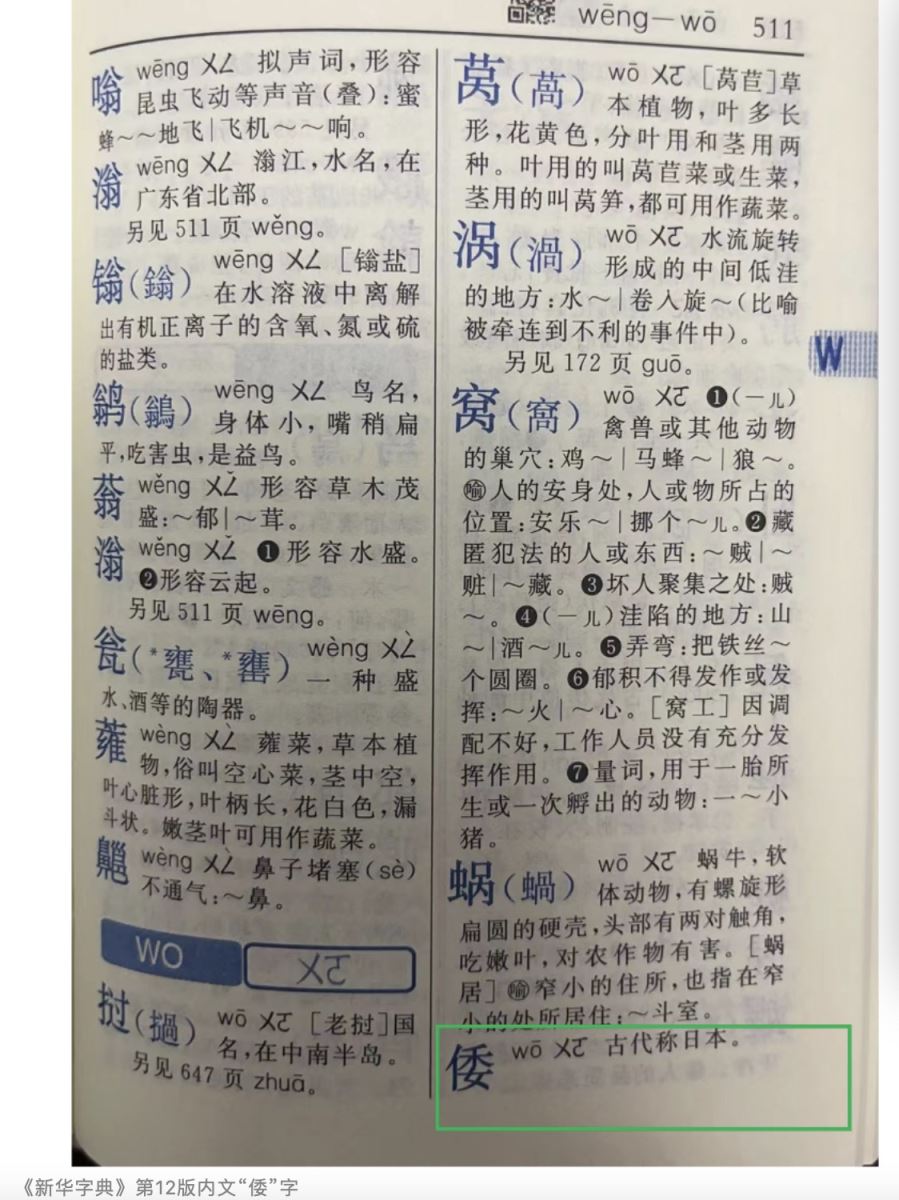 wēng－wō 511
嗡 wēng ㄨㄥ 拟声词，形容
昆虫飞动等声音（叠）：蜜
蜂～～地飞｜飞机～～响。
滃 wēng ㄨㄥ 滃江，水名，在
广东省北部。
另见511页 wěng。
鎓（鎓） wēng ㄨㄥ ［鎓盐］
在水溶液中离解
出有机正离子的含氧、氮或硫
的盐类。
鹟（鶲） wēng ㄨㄥ 鸟名，
身体小，嘴稍扁
平，吃害虫，是益鸟。
蓊 wěng ㄨㄥˇ 形容草木茂
盛：～郁｜～茸。
滃 wěng ㄨㄥˇ ❶形容水盛。
❷形容云起。
另见511页 wēng。
瓮（*甕、*罋） wèng ㄨㄥˋ
一种盛
水、酒等的陶器。
蕹 wèng ㄨㄥˋ 蕹菜，草本植
物，俗叫空心菜，茎中空，
叶心脏形，叶柄长，花白色，漏
斗状。嫩茎叶可用作蔬菜。
齆 wèng ㄨㄥˋ 鼻子堵塞（sè）
不通气：～鼻。
WO ㄨㄛ
挝（撾） wō ㄨㄛ ［老挝］国
名，在中南半岛。
另见647页 zhuā。
莴（萵） wō ㄨㄛ ［莴苣］草
本植物，叶多长
形，花黄色，分叶用和茎用两
种。叶用的叫莴苣菜或生菜，
茎用的叫莴笋，都可用作蔬菜。
涡（渦） wō ㄨㄛ 水流旋转
形成的中间低洼
的地方：水～｜卷入旋～（比喻
被牵连到不利的事件中）。
另见172页 guō。
窝（窩） wō ㄨㄛ ❶（－儿）
禽兽或其他动物
的巢穴：鸡～｜马蜂～｜狼～。
㊀喻人的安身处，人或物所占的
位置：安乐～｜挪个～儿。❷藏
匿犯法的人或东西：～贼｜～
赃｜～藏。❸坏人聚集之处：贼
～。❹（－儿）洼陷的地方：山
～｜酒～儿。❺弄弯：把铁丝～
个圆圈。❻郁积不得发作或发
挥：～火｜～心。［窝工］因调
配不好，工作人员没有充分发
挥作用。❼量词，用于一胎所
生或一次孵出的动物：一～小
猪。
蜗（蝸） wō ㄨㄛ 蜗牛，软
体动物，有螺旋形
扁圆的硬壳，头部有两对触角，
吃嫩叶，对农作物有害。［蜗
居］喻窄小的住所，也指在窄
小的处所居住：～斗室。
倭 wō ㄨㄛ 古代称日本。
W
《新华字典》第12版内文“倭”字